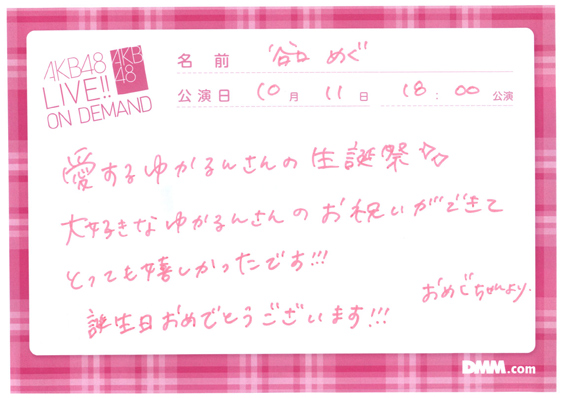 AKB48
LIVE!!
ON DEMAND
AKB
48
名前 谷口 めぐ
公演日 10月 11日 18:00 公演
愛するゆかるんさんの生誕祭♡♡
大好きなゆかるんさんのお祝いができて
とっても嬉しかったです!!!
誕生日おめでとうございます!!!
おめぐちゃんより.
DMM.com